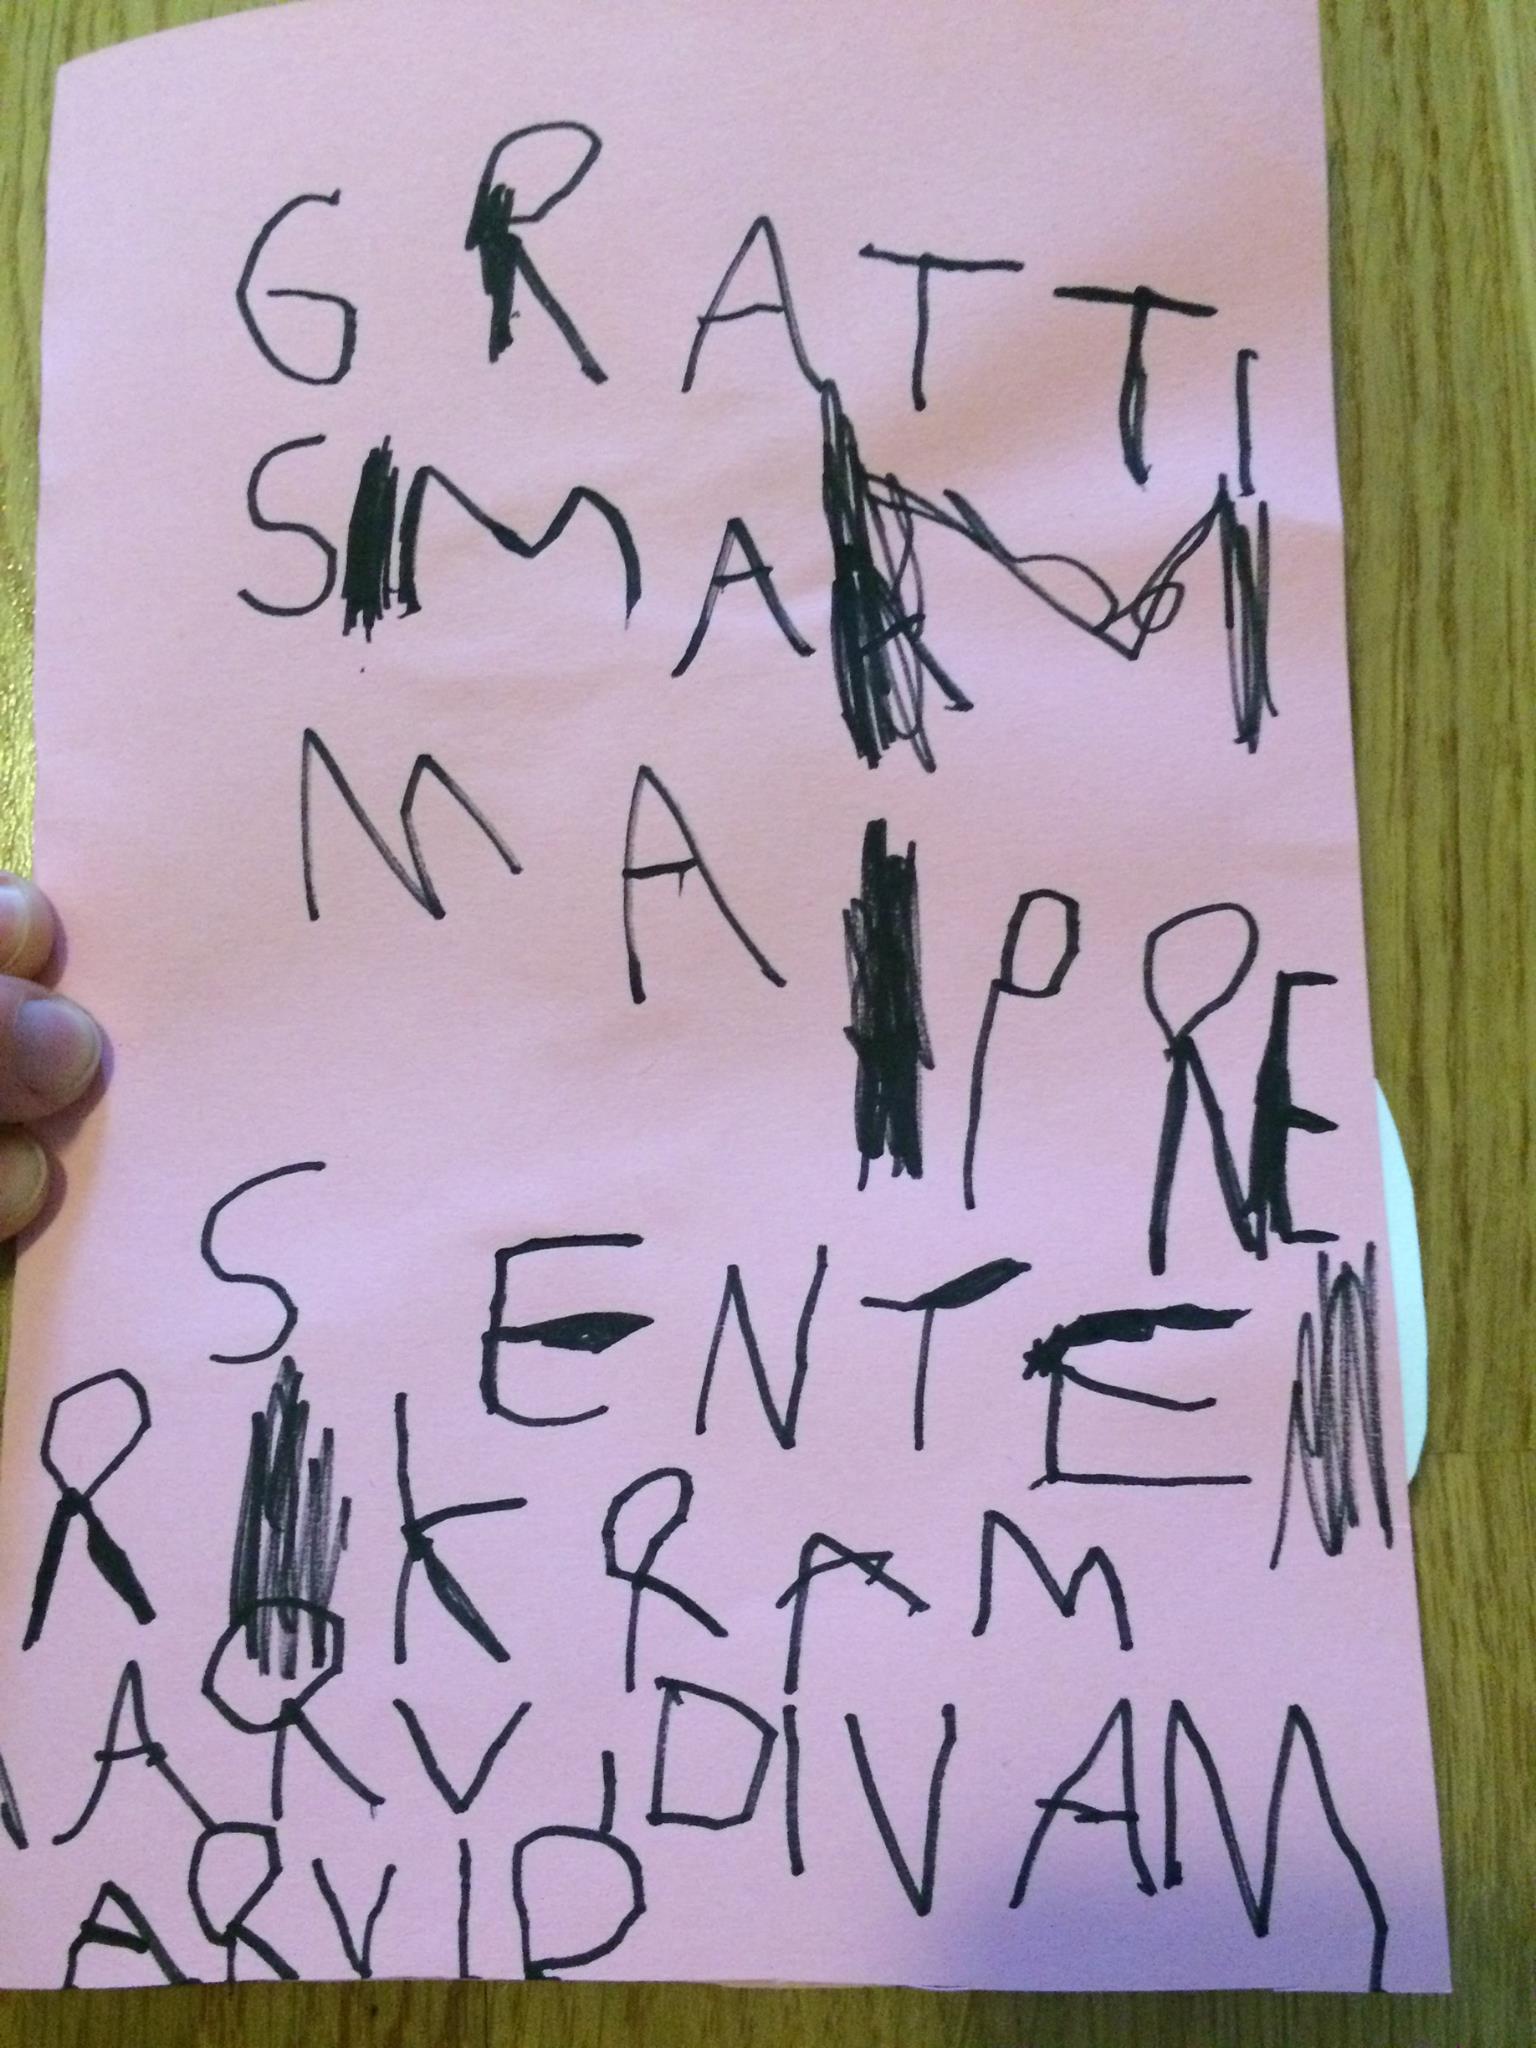 GRATTI
SMAM
MA PRE
SENTE
R KRAM
ARVDIVAM
ARVID